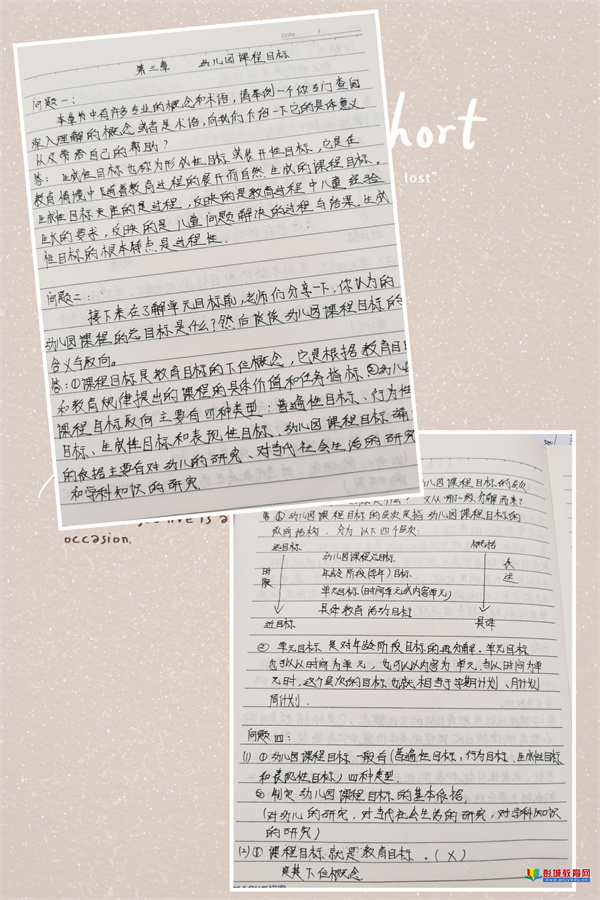 第三章 幼儿园课程目标
问题一：
本章节中有许多专业的概念和术语，请举例一个你专门查阅
深入理解的概念或者是术语，向我们介绍一下它的具体意义
以及带给自己的帮助？
答：生成性目标也称为形成性目标或展开性目标，它是在
教育情境中随着教育过程的展开而自然生成的课程目标。
生成性目标关注的是过程，反映的是教育过程中儿童经验
生长的要求，反映的是儿童问题解决的过程与结果。生成
性目标的根本特点是过程性。
问题二：
接下来在了解单元目标前，老师们分享一下，你认为的
幼儿园课程的总目标是什么？然后谈谈幼儿园课程目标的
含义与取向。
答：①课程目标是教育目标的下位概念，它是根据教育目
和教育规律提出的课程的具体价值和任务指标。②幼儿园
课程目标取向主要有四种类型：普遍性目标、行为性
目标、生成性目标和表现性目标。幼儿园课程目标编
的依据主要有对幼儿的研究、对当代社会生活的研究
和学科知识的研究。
hort
lost"
live is a
occasion.
幼儿园课程目标的层次
答①幼儿园课程目标的层次是指幼儿园课程目标的
纵向结构，分为以下四个层次：
远目标 概括
幼儿园课程总目标
年龄阶段(学年)目标
单元目标(时间单元或内容单元)
具体教育活动目标
时限
表述
近目标 具体
② 单元目标是对年龄阶段目标的再分解。单元目标
也可以以时间为单元，也可以以内容为单元。当以时间为单
元时，这个层次的目标也就相当于学期计划、月计划
周计划。
问题四：
(1) ①幼儿园课程目标一般有(普遍性目标，行为目标，生成性目标
和表现性目标)四种类型。
② 制定幼儿园课程目标的基本依据。
(对幼儿的研究，对当代社会生活的研究，对学科知识
的研究)
(2) ① 课程目标就是教育目标。(X)
是其下位概念
彭城教育网